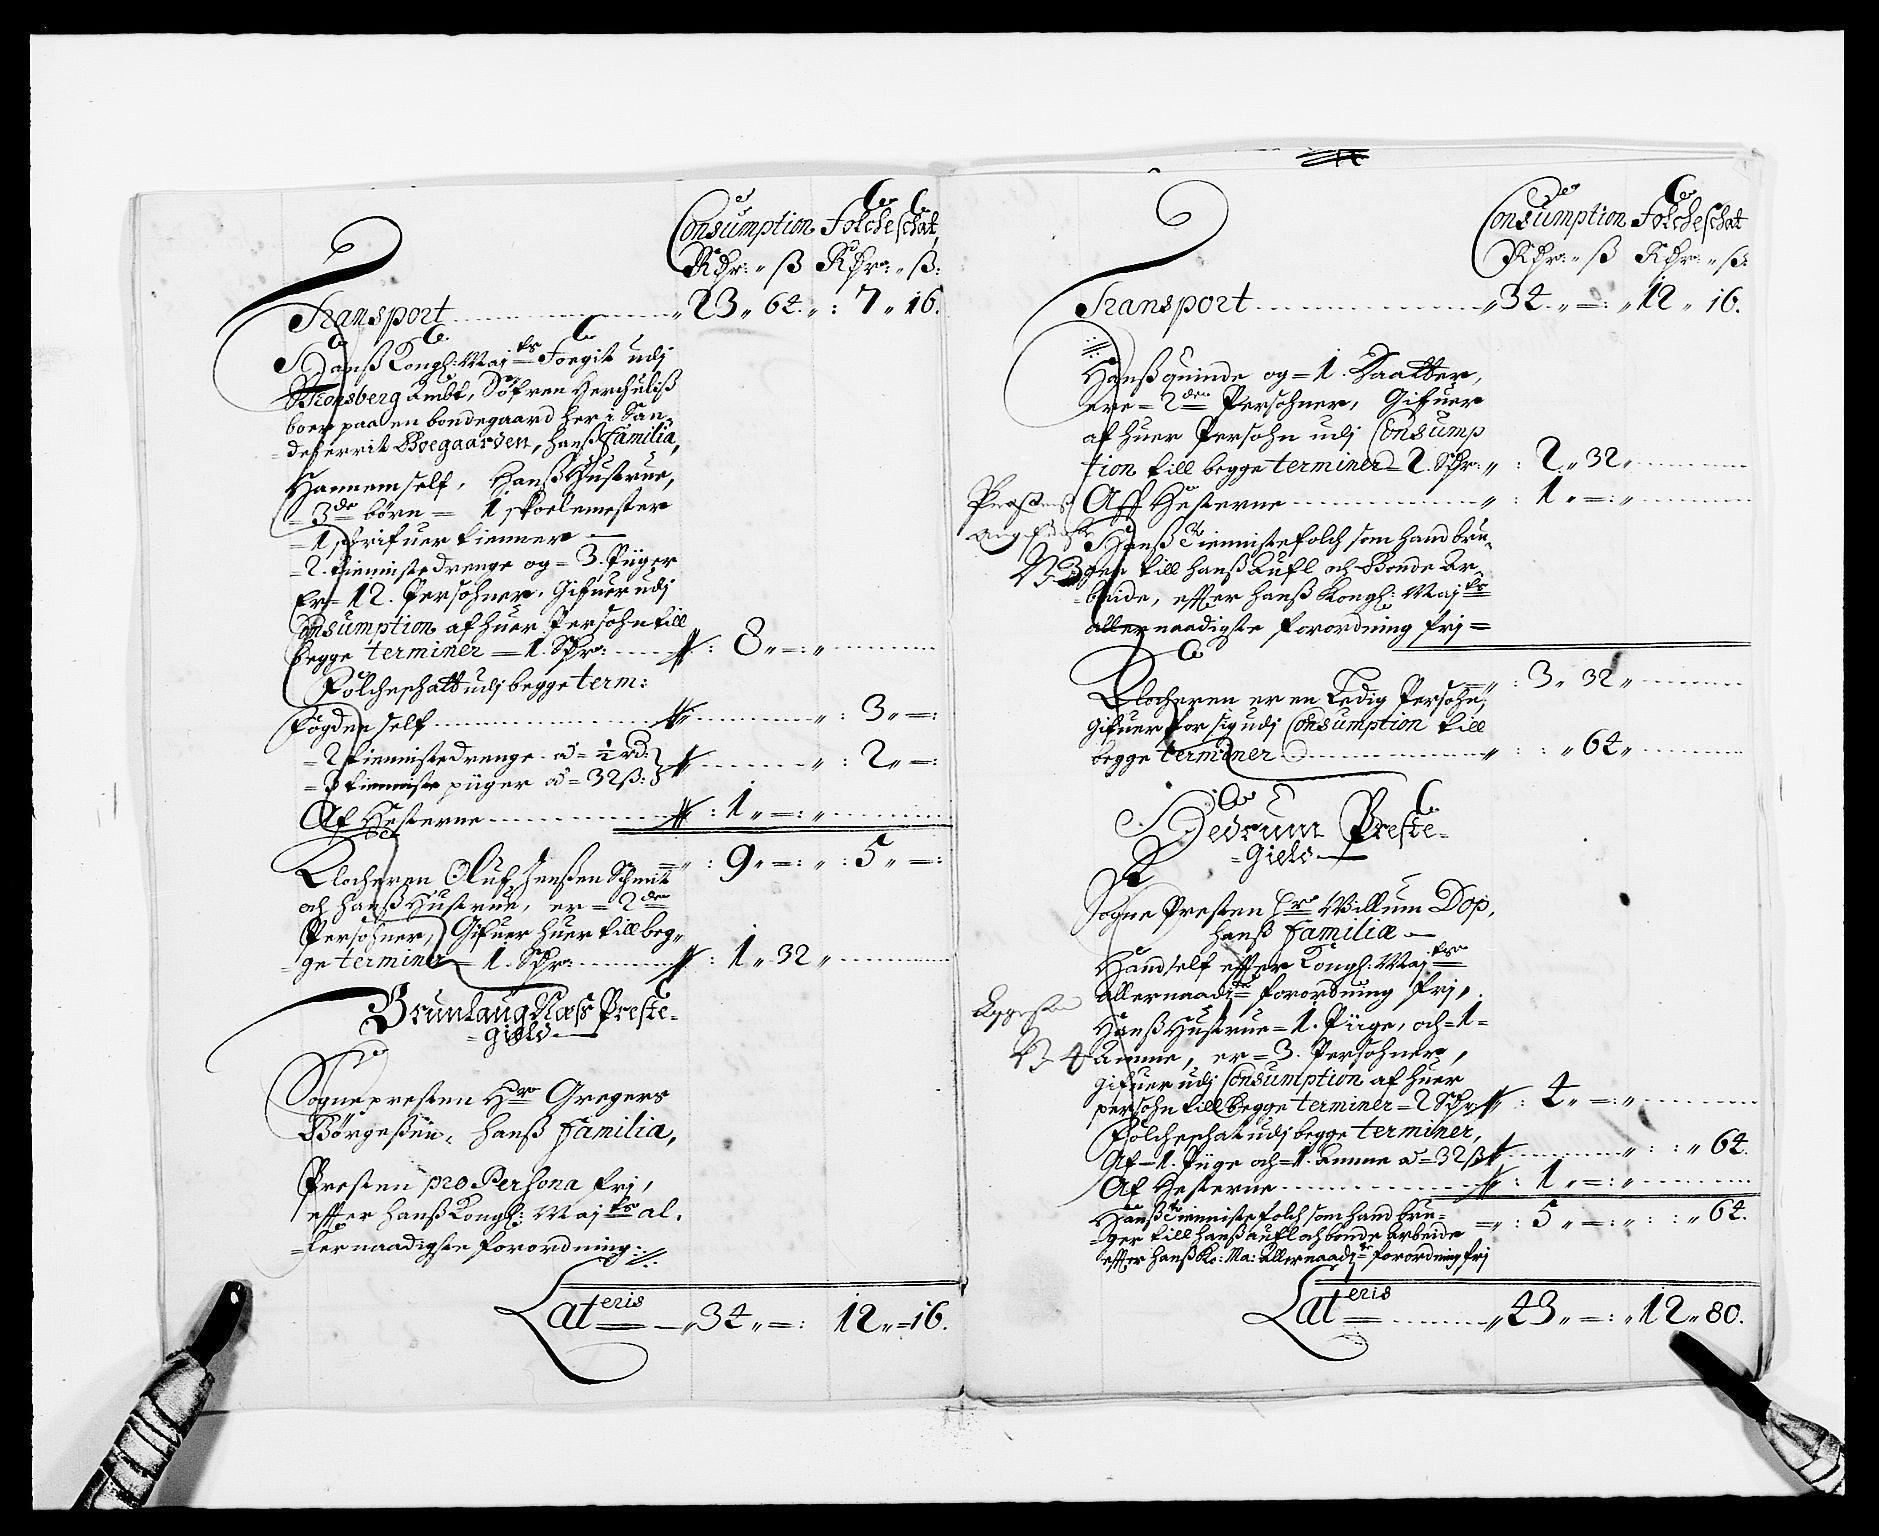 Consumption Folcheschat
Rdr: " ß Rdr: " ß:
Transport " 23 " 64 " : 7 " 16.
Hanß Kongl: Maj:ts Foegit udj
Tronsberg Ambt, Söfren Herchuliß
boer paa en bondegaard her i San
deherrit Boegaarden, hanß familia,
Hannem self, Hanß Hustrue,
= 3de börn = 1 skoelemester
= 1 schrifuer tienner =
= 2. tienniste drenge og = 3. Piiger
Er = 12. Persohner. Gifuer udj
Consumption af huer Persohn till
begge terminer = 1. Sldr: : 8 " = : "
Folcheschatt udj begge term:
Fogden self " : 3 " = :
= 2 tienniste drenge ad = ½ rd: " : 2 " = :
= 3 tienniste piiger ad = 32 ß:
Af Hesterne : 1 " = : "
= " : 9 " = : " : 5 " = :
Klocheren Oluf Jenßen Schmit
och hanß Hustrue, er = 2de
Persohner, Gifuer huer till beg=
ge terminer = 1. Sldr: : 1 " 32 "
Brunlaugnæss Preste=
= gield
Sognepresten Hr Gregers
Börgeßen, hanß familia,
Presten pro Persona fri,
effter hanß Kongl: Maj:ts al=
= lernaadigste forordning://:
Lateris " 34 " = : 12 " = 16.
Consumption Folcheschat
Rdr: " ß Rdr: " ß:
Transport " 34 " = : " 12 " 16.
Hanß quinde og = 1. Daatter,
ere = 2de Persohner, Gifuer
af huer Persohn udj Consump
tion till begge terminer = 2. Sldr: " : 2 " 32 "
Aff Hesterne " : 1 " = : "
Prestens
N. 3
Hanß tienniste folch som hand bru=
ger till hanß Aufl och Bonde Ar=
beide, effter hanß Kongl: Maj:ts
allernaadigste forordning fri =
= " : 3 " 32 "
Klocheren er en Ledig Persohn,
Gifuer for sig udj Consumption till
begge terminer " : : " 64 "
Hedrum Preste=
= gield
Sogne Presten Hr Willum Dop,
hanß familiæ
Hand self effter Kongl: Maj:ts
allernaadste forordning fri,
Hanß Hustrue = 1. Piige, och = 1 =
N. 4
Amme, er = 3. Persohner,
gifuer udj Consumption af huer
persohn till begge terminer = 2 Sldr : 4 " = : "
Folcheschat udj begge terminer,
Af = 1. Piige och = 1. Amme ad = 32 ß " : : " 64.
Af Hesterne : 1 " = : "
= " : 5 " = : " : : " 64.
Hanß tienniste folch som hand bru=
= ger till hanß aufl och bonde arbeide
effter hanß Ko: Ma: allernaadste forordning fri
Lateris " 43 " = : " 12 " 80.